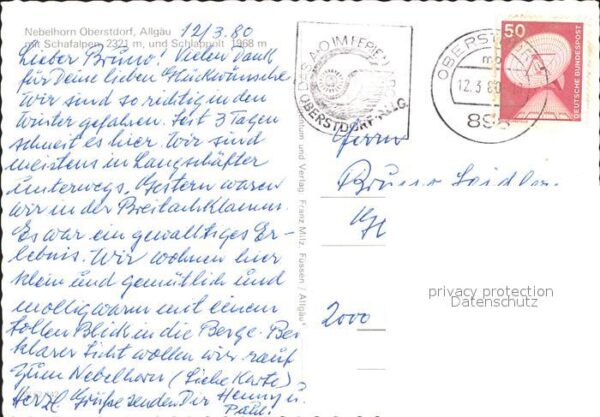 Nebelhorn Oberstdorf, Allgäu
mit Schafalpen 2321 m, und Schlappolt 1968 m
12/3.80
Lieber Bruno! Vielen Dank
für Deine lieben Glückwünsche.
Wir sind so richtig in den
Winter gefahren. Seit 3 Tagen
schneit es hier. Wir sind
meistens in Langschäfter
unterwegs. Gestern waren
wir in der Breitachklamm.
Es war ein gewaltiges Er-
lebnis. Wir wohnen hier
klein und gemütlich und
mollig warm mit einem
tollen Blick in die Berge. Bei
klarer Sicht wollen wir rauf
zum Nebelhorn (Siehe Karte)
Herzl. Grüße senden Dir Henny u.
Paul!
und Verlag Franz Milz, Füssen / Allgäu
OBERSTDORF ALLG.
OBERSTDORF
12.3.80
898
50
DEUTSCHE BUNDESPOST
Herrn
Bruno
2000
privacy protection
Datenschutz